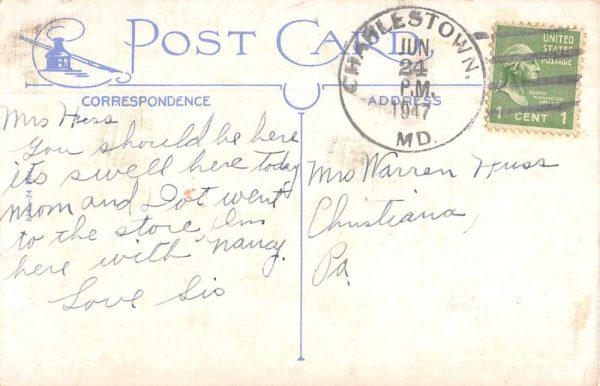 POST CARD
CHARLESTOWN.
JUN.
24
P.M.
1947
MD.
UNITED
STATES
POSTAGE
GEORGE
WASHINGTON
1 CENT 1
CORRESPONDENCE
ADDRESS
Mrs Huss
You should be here
its swell here today
mom and Dot went
to the store, Im
here with nancy.
Love Sis
Mrs Warren Huss
Christiana,
Pa.